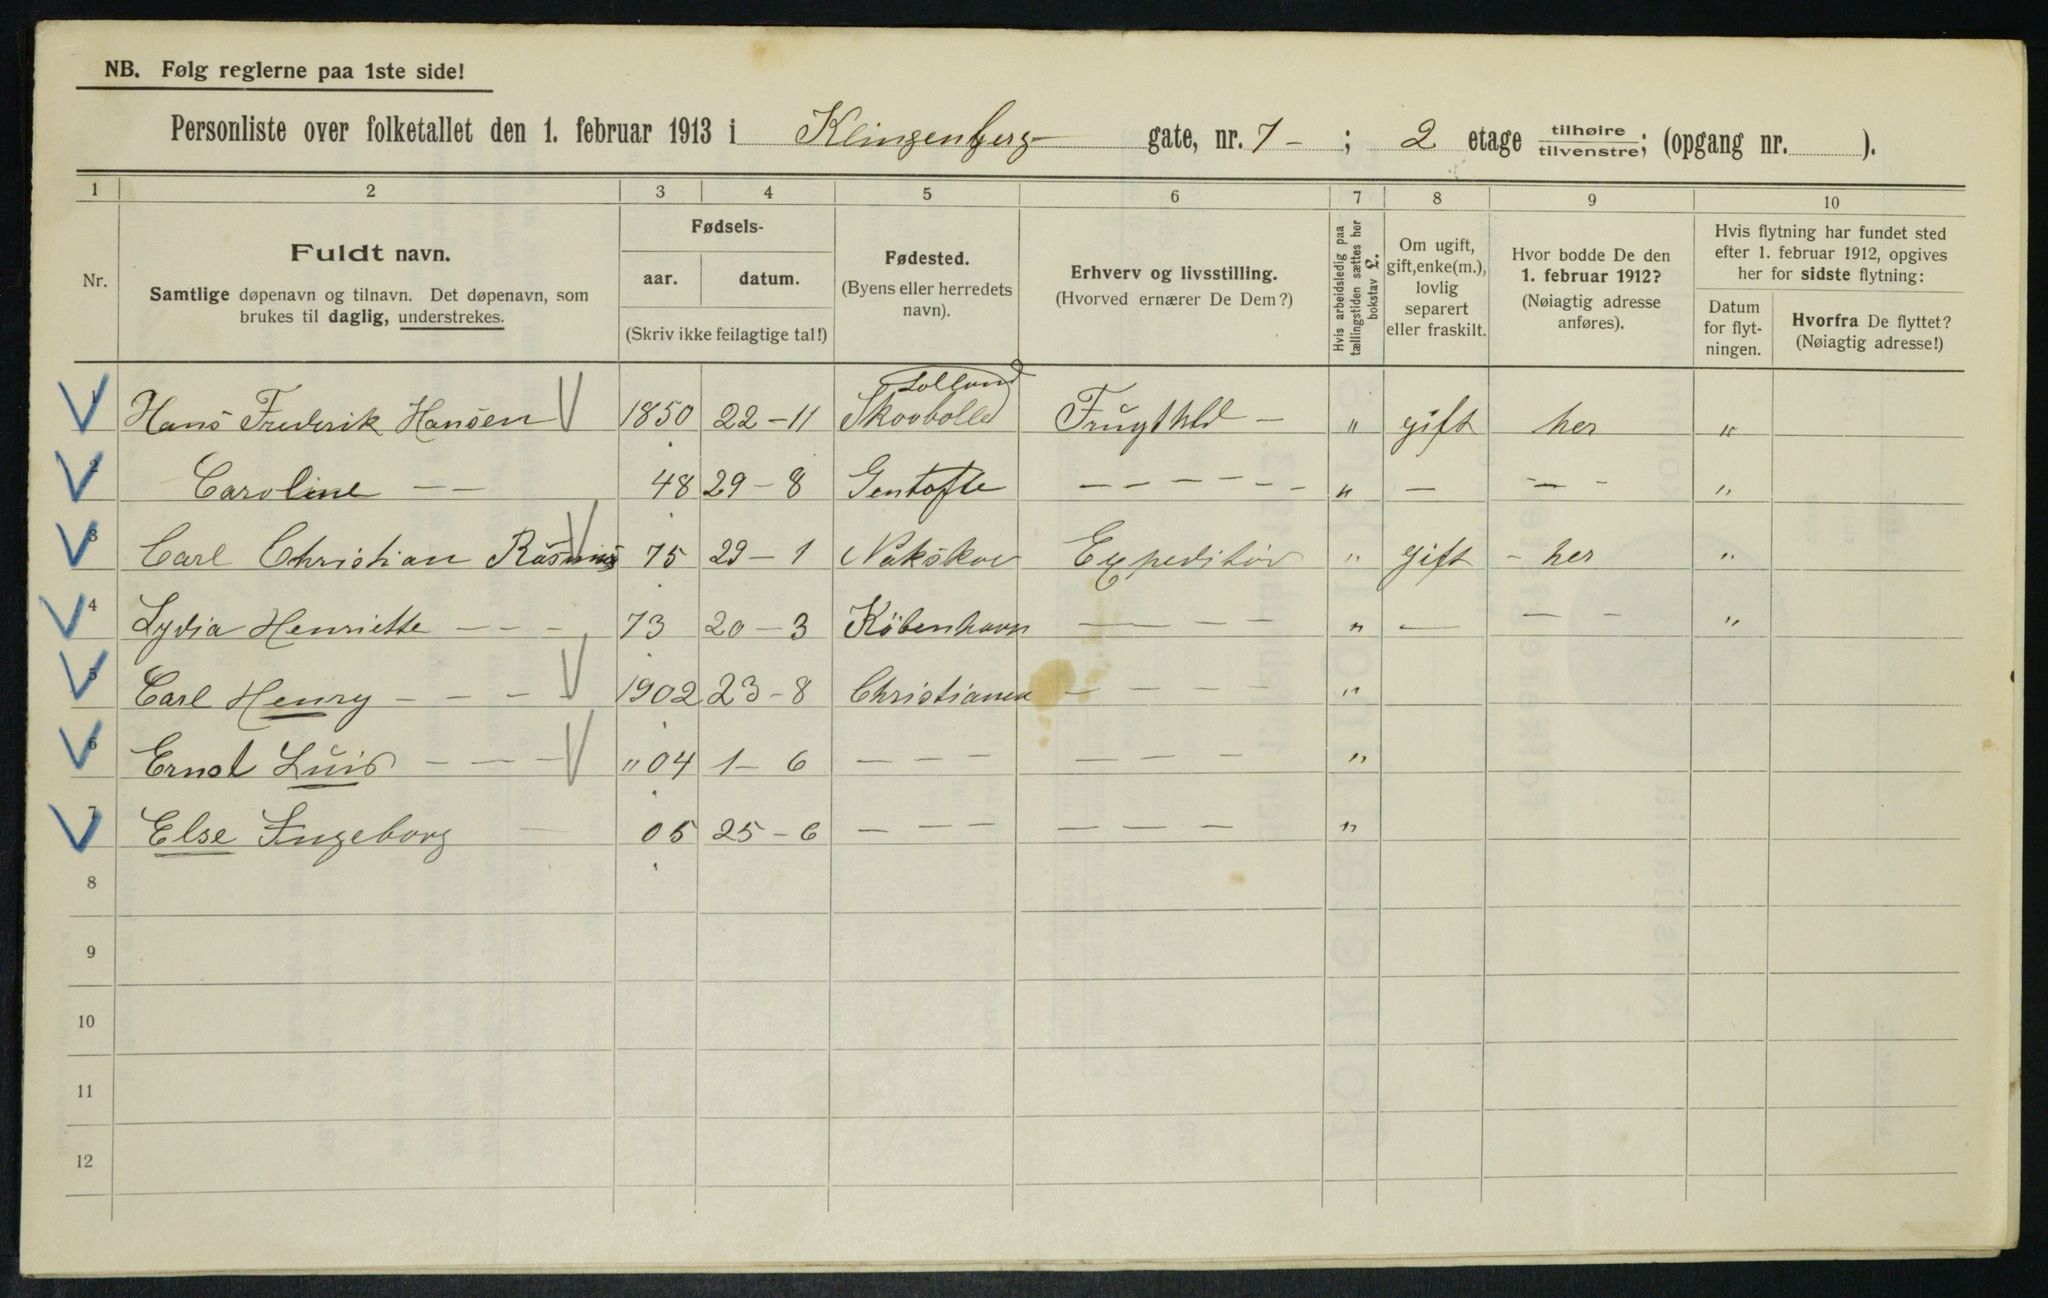 NB. Følg reglerne paa 1ste side!
Personliste over folketallet den 1. februar 1913 i Klingenberg gate, nr. 7 - ; 2 etage tilhøire tilvenstre; (opgang nr. ).
1 2 3 4 5 6 7 8 9 10
Nr.
Fuldt navn.
Samtlige døpenavn og tilnavn. Det døpenavn, som
brukes til daglig, understrekes.
Fødsels-
aar. datum.
(Skriv ikke feilagtige tal!)
Fødested.
(Byens eller herredets
navn).
Erhverv og livsstilling.
(Hvorved ernærer De Dem?)
Hvis arbeidsledig paa
tællingstiden sættes her
bokstav L.
Om ugift,
gift, enke(m.),
lovlig
separert
eller fraskilt.
Hvor bodde De den
1. februar 1912?
(Nøiagtig adresse
anføres).
Hvis flytning har fundet sted
efter 1. februar 1912, opgives
her for sidste flytning:
Datum
for flyt-
ningen.
Hvorfra De flyttet?
(Nøiagtig adresse!)
Lolland
1 Hans Frederik Hansen 1850 22-11 Skovbolle Frugthld - " gift her "
2 Caroline - - 48 29-8 Gentofte - - - - - - " - - - - "
3 Carl Christian Rasmus 75 29-1 Nakskov Expeditør " gift - her "
4 Lydia Henriette - - - 73 20-3 København - - - - " - - - "
5 Carl Henry - - - 1902 23-8 Christiania - - - - "
6 Ernst Luis - - - " 04 1-6 - - - - - "
7 Else Ingeborg - 05 25-6 - - - - - - "
8
9
10
11
12